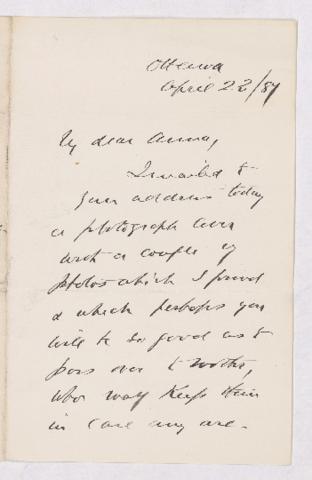 Ottawa
April 22/87
My dear Anna,
I mailed to
your address today
a photograph
and a couple of
photos which I found
& which perhaps you
will be so good as to
pass over to
who may keep them
in case any are.